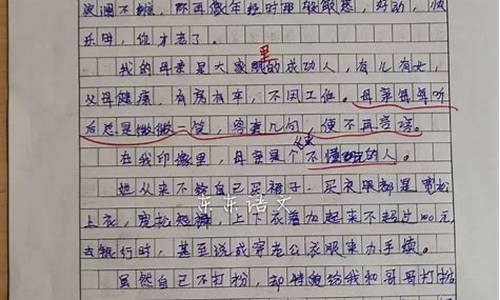 波澜不惊，不再像年轻时那般敏感，好动，快
乐时，你才老了。
我的母亲是大家眼里的成功人，有儿有女，
父母健康，有房有车，不用工作。母亲每每听
后总是微微一笑，寒暄几句，便不再言语。
在我印像里，母亲是个从来不懂的人。
她从来不给自己买裙子，买衣服都是宽松
上衣，宽松短裤，上下衣着加起来不超过100元，
去银行时，甚至说或穿老公衣服来办手续。
虽然自己不打扮，却给我和哥哥打扮
东东语文